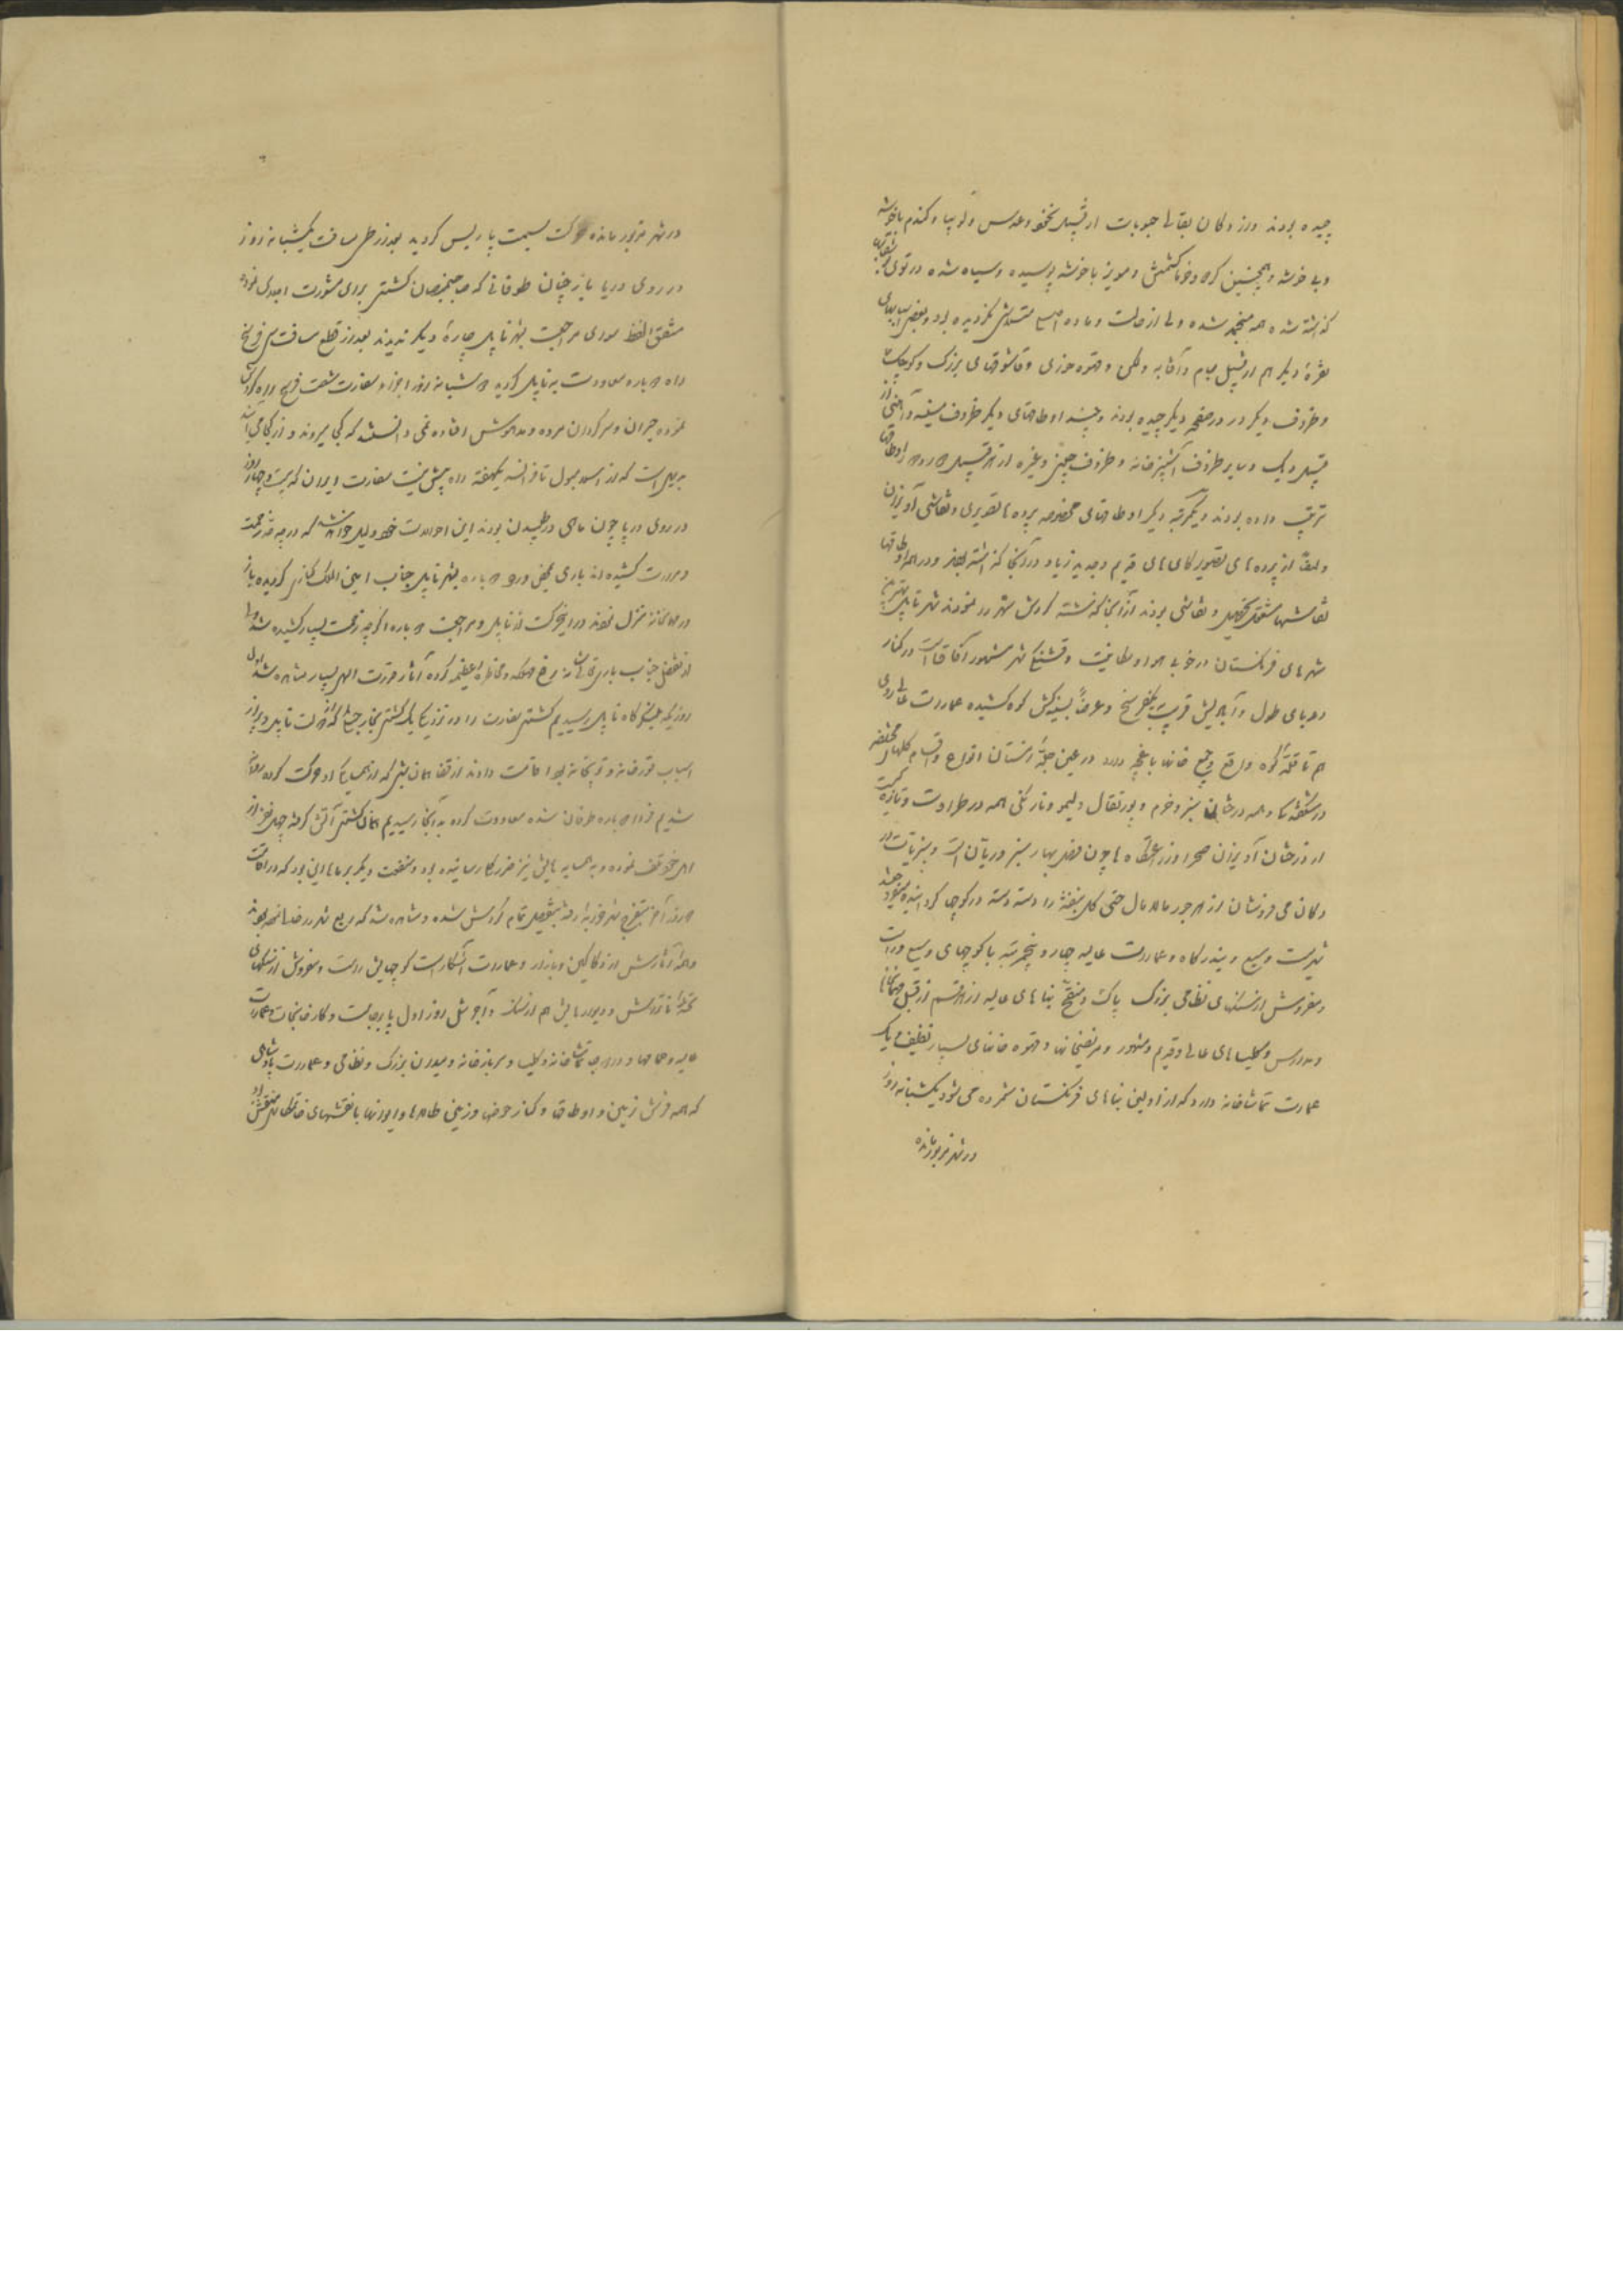 چیده بودند و از دکان بقالی حبوبات از قبیل نخود و عدس و لوبیا و گندم با خوشه
و بی خوشه و همچنین گردو و خرما کشمش و مویز با خوشه پوسیده و سیاه شده در توی
گذاشته شده همه منجمد شده ولی از حالت و ماده اصلیه نگردیده بود و بعضی اسبابهای
نقرهٔ دیگر هم از قبیل جام و آفتابه و لگن و قهوه خوری و قاشقهای بزرگ و کوچک
و ظروف دیگر در در صفحه دیگر چیده بودند و چند اوطاقهای دیگر ظروف مسینه و آهنی از
قبیل دیگ و سایر ظروف آشپزخانه و ظروف چینی و غیره از هر قبیل در اوطاقها
ترتیب داده بودند و یکمرتبه دیگر اوطاقهای مخصوصه پرده‌ها تصویری و نقاشی آویزان
و از پرده‌های تصویر کاری‌های قدیم و جدید زیاد در آنجا گذاشته بودند و در همه اوطاقها
نقاشها مشغول تحصیل و نقاشی بودند از آنجا گذشته گردش شهر را نمودند شهر ناپل بهترین
شهرهای فرنگستان در خوبی هوا و لطافت و قشنگی شهر مشهور آفاق است در کنار
دریای طول و آبادیش قریب یکفرسخ و عرضاً بسینه‌کش کوه کشیده عمارات عالی دارد
هم تا قلهٔ کوه واقع و جمیع خانها باغچه دارد در عین چلهٔ زمستان انواع و اقسام گلهای مختلفه
در شکفتگی و همه درختان سبز و خرم و پورتقال و لیمو و نارنگی همه در طراوت و تازگی
از درختان آویزان صحرا و زراعتگاه‌ها چون فصل بهار سبز و ریان است و سبزیات در
دکان می فروشان از هر جور مالامال حتی گل بنفشه را دسته دسته در کوچه‌ها گردانیده میفروشند
شهریست وسیع و بندرگاه و عمارات عالیه چهار و پنج مرتبه با کوچهای وسیع و راست
و مفروش از سنگهای نظامی بزرگ پاک و منقح بناهای عالیه از هر قسم از قبیل مهمانخانها
و مدارس و کلیساهای عالی و قدیم و مشهور و مریضخانها و قهوه خانهای بسیار نظیف و یک
عمارت تماشاخانه دارد که از اولین بناهای فرنگستان شمرده می شود یکشبانه روز
در شهر مزبور مانده
در شهر مزبور مانده حرکت بسمت پاریس گردید بعد از طی مسافت یکشبانه روز
در روی دریا باز چنان طوفانی که صاحبمنصبان کشتی برای مشورت اجلاس نموده
متفق اللفظ سوای مراجعت بشهر ناپل چارهٔ دیگر ندیدند بعد از قطع مسافت سی فرسخ
راه دوباره معاودت به ناپل گردید شبانه روز اجزاء سفارت
نموده حیران و سرگردان مرده و مدهوش افتاده نمی دانستند که کجا میروند و از کجا می آیند
بدیهی است که از اسلامبول تا فرانسه یکهفته راه بیش نیست سفارت ایران که بیست و چهار روز
در روی دریا چون ماهی در طپیدن بودند این احوالات خود دلیل خواهد شد که در چه قدر زحمت
و مرارت کشیده‌اند باری بمحض ورود دوباره بشهر ناپل جناب امین الملک کنار گردیده باز
در مهمانخانه منزل نمودند در این حرکت از ناپل و مراجعت دوباره اگرچه زحمت بسیار کشیده شد ولی
از تفضل جناب باری تعالی شانه رفع مهلکه و مخاطره عظیمه کرده آثار قدرت الهی بسیار مشاهده شد اول
روزیکه بلنگرگاه ناپل رسیدیم کشتی سفارت را در نزدیکی یک کشتی بخار جنگی که از دولت ناپل و پر از
اسباب قورخانه و توپخانه بود اقامت دادند از قضا همان شبی که از همسایگی او حرکت کرده روانه
شدیم فردا دوباره طوفان شده معاودت کرده به آنجا رسیدیم همان کشتی آتش گرفته چهل نفر از
اهل خود تلف نموده و به همسایه هایش نیز ضرر کلی رسانیده بود و شفقت دیگر بر ما این بود که در اقامت
دفعه آخر بتفرج شهر رفته بتفصیل تمام گردش شده و مشاهده شد که
و همه آثارش از دکاکین و بازار و عمارات آشکار است کوچه‌هایش راست و مفروش از سنگهای
تخته‌اند تراش و دیوارهایش هم از سنگ و آجر مثل روز اول پابرجاست و کارخانجات و عمارات
عالیه و حمامها و دارد تماشاخانه و کلیسا و سربازخانه و میدان بزرگ و نظامی و عمارات پادشاهی
که همه فرش زمین و اوطاقها و کنار حوضها و زمین طالارها و ایوانها با نقشهای خاتم منقش دارد